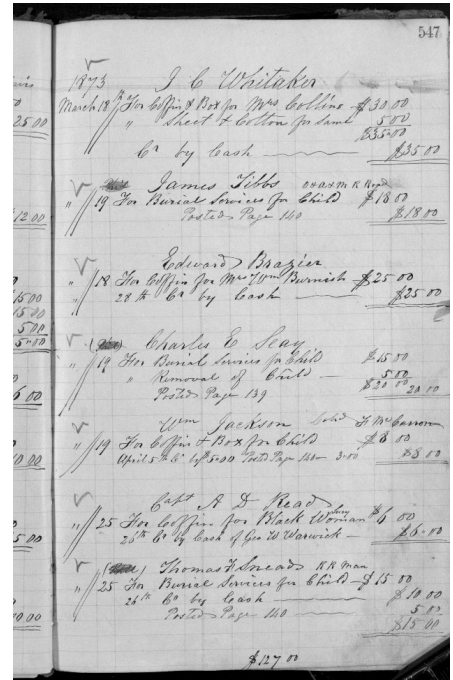 547
1873 J C Whitaker
March 18th For Coffin & Box for Mrs Collins $30 00
" Sheet & Cotton for same 5 00
$35 00
Cr by Cash $35 00
James Tibbs O & A & M R Road
" 19 For Burial Services for Child $18 00
Posted Page 140 $18 00
Edward Brazier
" 18 For Coffin for Mrs Wm Burnish $25 00
28th Cr by Cash $25 00
Charles E Seay
" 19 For Burial Services for Child $15 00
" Removal of Child 5 00
$20 00 20 00
Posted Page 139
Wm Jackson Cold
" 19 For Coffin & Box for Child $8 00
April 5th Cr by 5.00 Posted Page 3.00 $8 00
Capt A D Read
" 25 For Coffin for Black Woman $6 00
26th Cr by Cash of Geo W Warwick $6 00
Thomas F Sneads R R Man
" 25 For Burial Services for Child $15 00
26th Cr by Cash $10 00
Posted Page 140 5 00
$15 00
$127 00
25 00
$12 00
$15 00
15 00
5 00
5 00
6 00